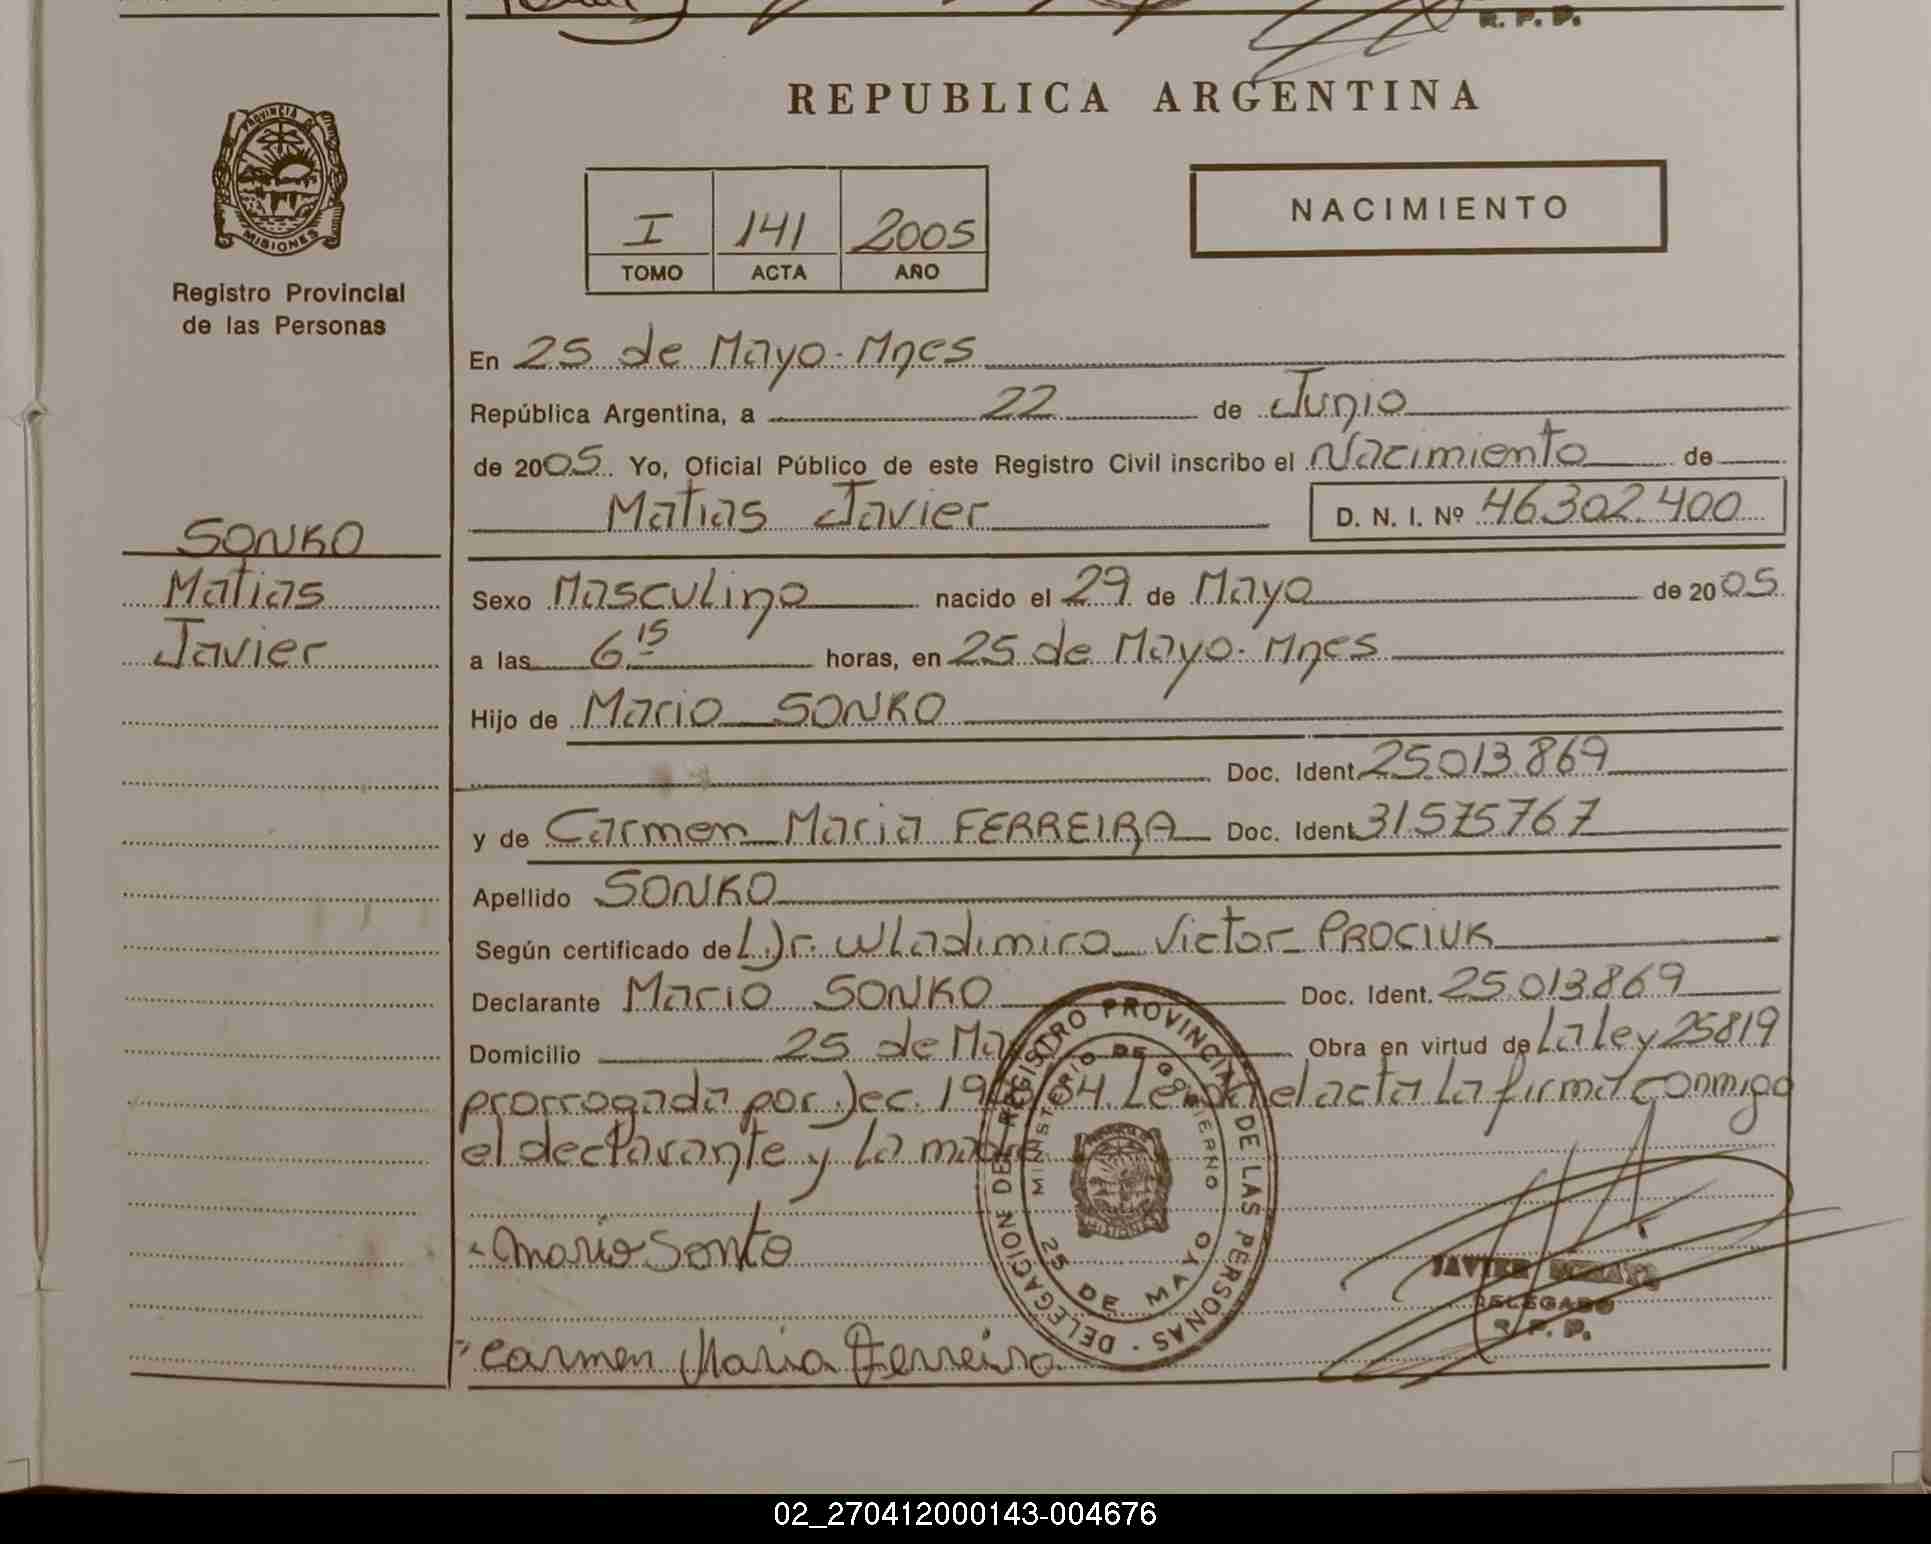 R. P. P.
REPUBLICA ARGENTINA
PROVINCIA DE MISIONES
I 141 2005
TOMO ACTA AÑO
NACIMIENTO
Registro Provincial
de las Personas
En 25 de Mayo - Mnes
República Argentina, a 22 de Junio
de 2005. Yo, Oficial Público de este Registro Civil inscribo el Nacimiento de
Matias Javier D. N. I. Nº 46.302.400
SONKO
Matias
Javier
Sexo Masculino nacido el 29 de Mayo de 2005
a las 6 15 horas, en 25 de Mayo - Mnes
Hijo de Mario SONKO
Doc. Ident. 25.013.869
y de Carmen Maria FERREIRA Doc. Ident. 31575767
Apellido SONKO
Según certificado de Dr. Wladimiro Victor PROCIUK
Declarante Mario SONKO Doc. Ident. 25.013.869
Domicilio 25 de Mayo Obra en virtud de La ley 25819
prorrogada por Dec. Leida el acta la firma conmigo
el declarante y la madre
Mario Sonko
Carmen Maria Ferreira
DELEGACION DEL REGISTRO PROVINCIAL DE LAS PERSONAS
MINISTERIO DE GOBIERNO
25 DE MAYO
MISIONES
JAVIER
DELEGADO
R. P. P.
02_270412000143-004676